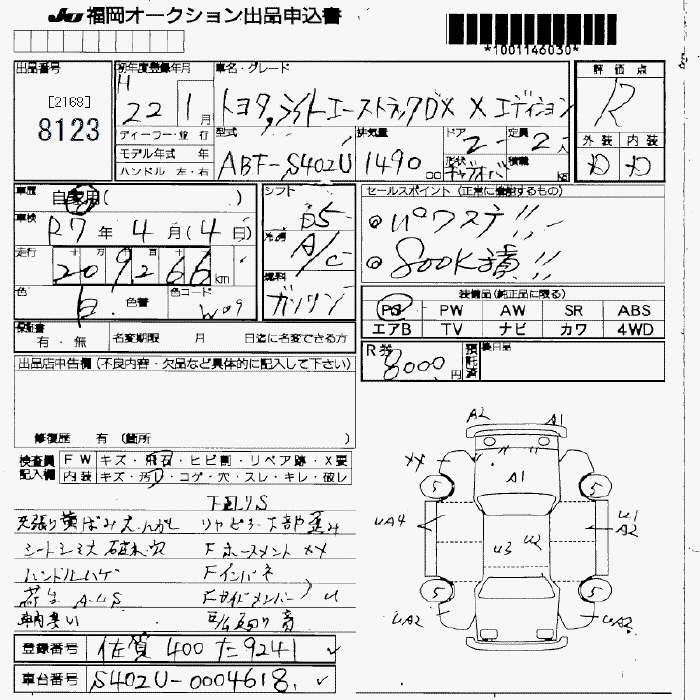 JU 福岡オークション出品申込書
*1001146030*
出品番号
[2168]
8123
初年度登録年月
H 22 年 1 月
ディーラー・並行
モデル年式 年
ハンドル 左・右
車名・グレード
トヨタ ライトエーストラックDX Xエディション
型式
ABF-S402U
排気量
1490 cc
ドア
2
定員
2 人
形状
積載
評価点
R
外装 内装
D D
車歴
自家用( )
車検
R7 年 4 月 (4 日)
走行
十 万 千 百 十 一
209266 km
色
白 色替
色コード
W09
シフト
F5
冷房
A/C
燃料
ガソリン
セールスポイント (正常に機能するもの)
◎パワステ!!
◎800K積!!
装備品(純正品に限る)
PS PW AW SR ABS
エアB TV ナビ カワ 4WD
保証書
有・無
名変期限 月 日迄に名変できる方
R券
8000 円
預託済
後日品
出品店申告欄 (不良内容・欠品など具体的に記入して下さい)
修復歴 有 (箇所 )
検査員記入欄
FW キズ・飛石・ヒビ割・リペア跡・X要
内装 キズ・汚れ・コゲ・穴・スレ・キレ・破レ
下回りS
天張り黄ばみ
シート
ハンドルハゲ
車内臭い
Fホースメント XX
Fインパネ
Fサイドメンバー U
登録番号
佐賀 400 た 9241
車台番号
S402U-0004618
A2
A1
XX
A1
5
5
UA4
U3
U2
U1
A2
5
5
UA2
UA2